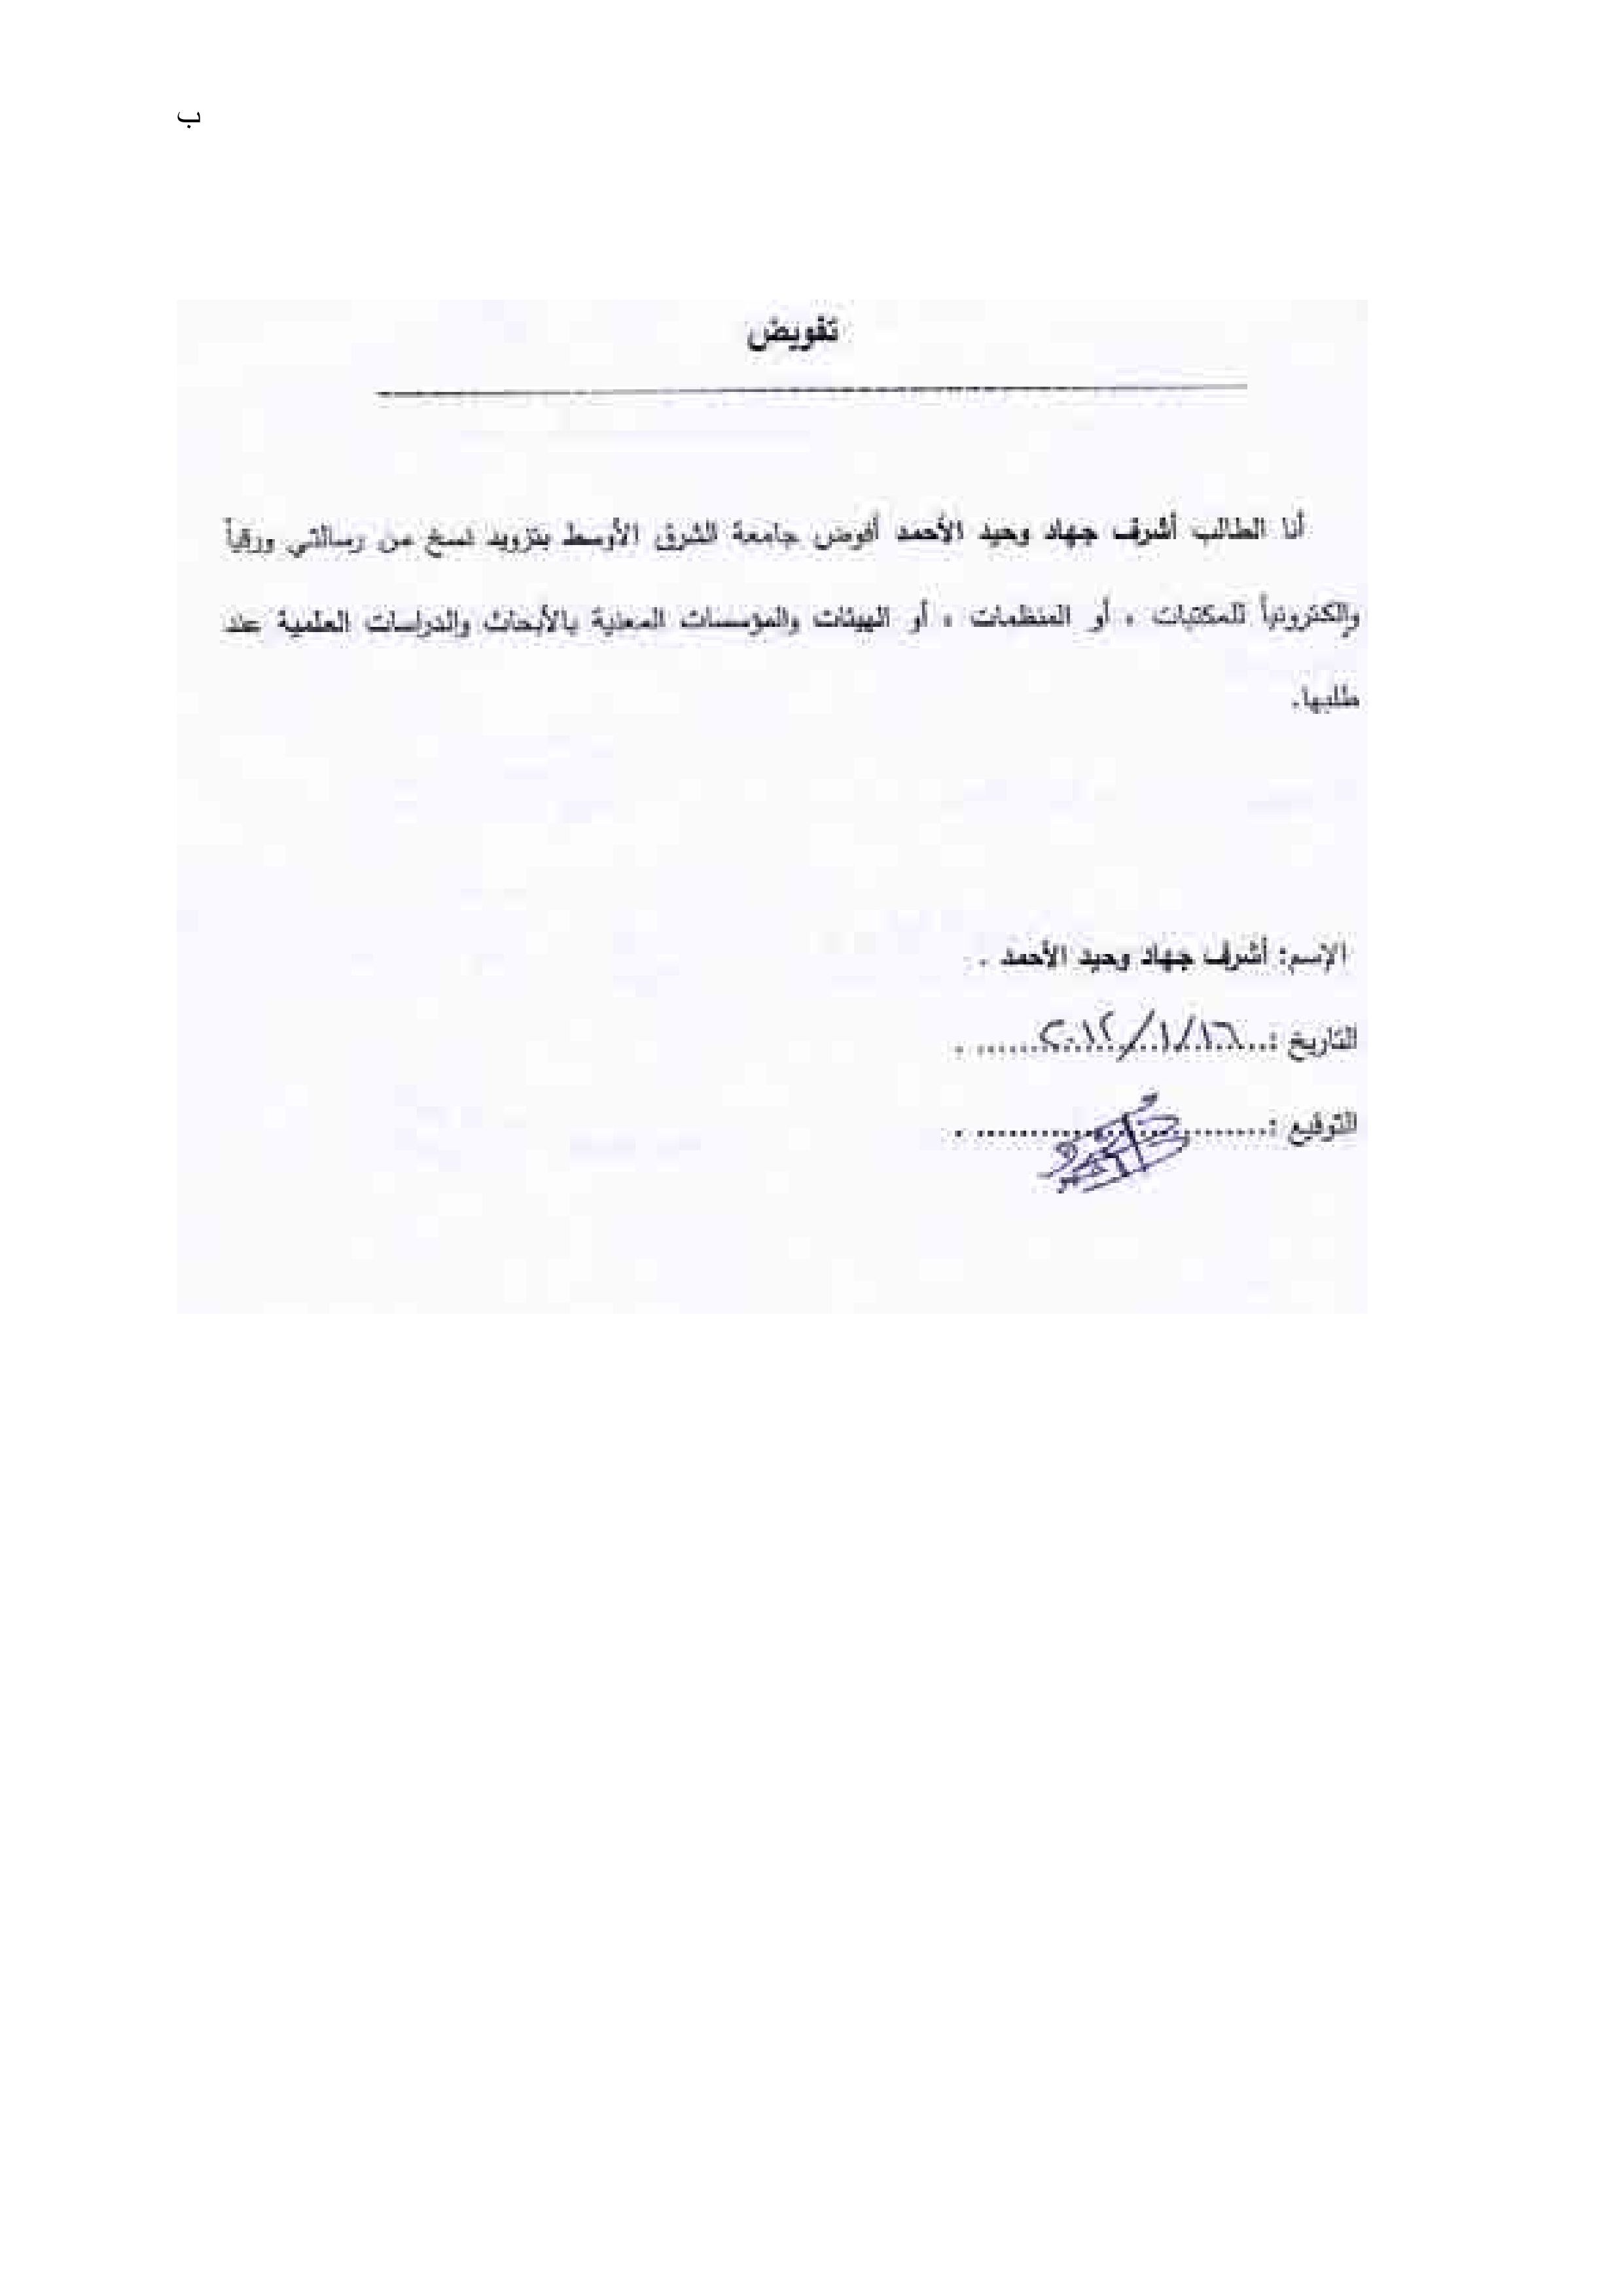 ب
تفويض
أنا الطالب أشرف جهاد وحيد الأحمد أفوض جامعة الشرق الأوسط بتزويد نسخ من رسالتي ورقياً
وإلكترونياً للمكتبات ، أو المنظمات ، أو الهيئات والمؤسسات المعنية بالأبحاث والدراسات العلمية عند
طلبها.
الإسم: أشرف جهاد وحيد الأحمد .
التاريخ :..١٦/١/٢٠١٢...... .
التوقيع :........................ .